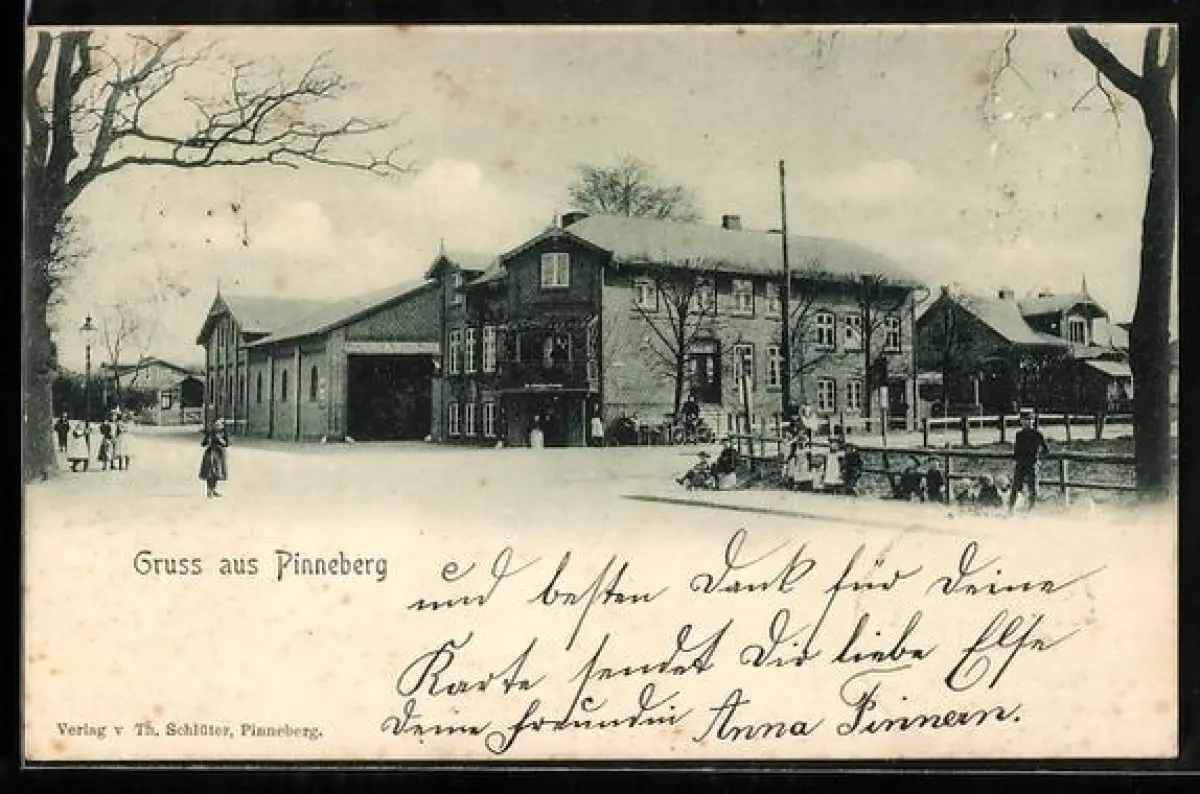 Gruss aus Pinneberg
und besten Dank für Deine
Karte sendet Dir liebe Else
Deine Freundin Anna
Verlag v Th. Schlüter, Pinneberg.